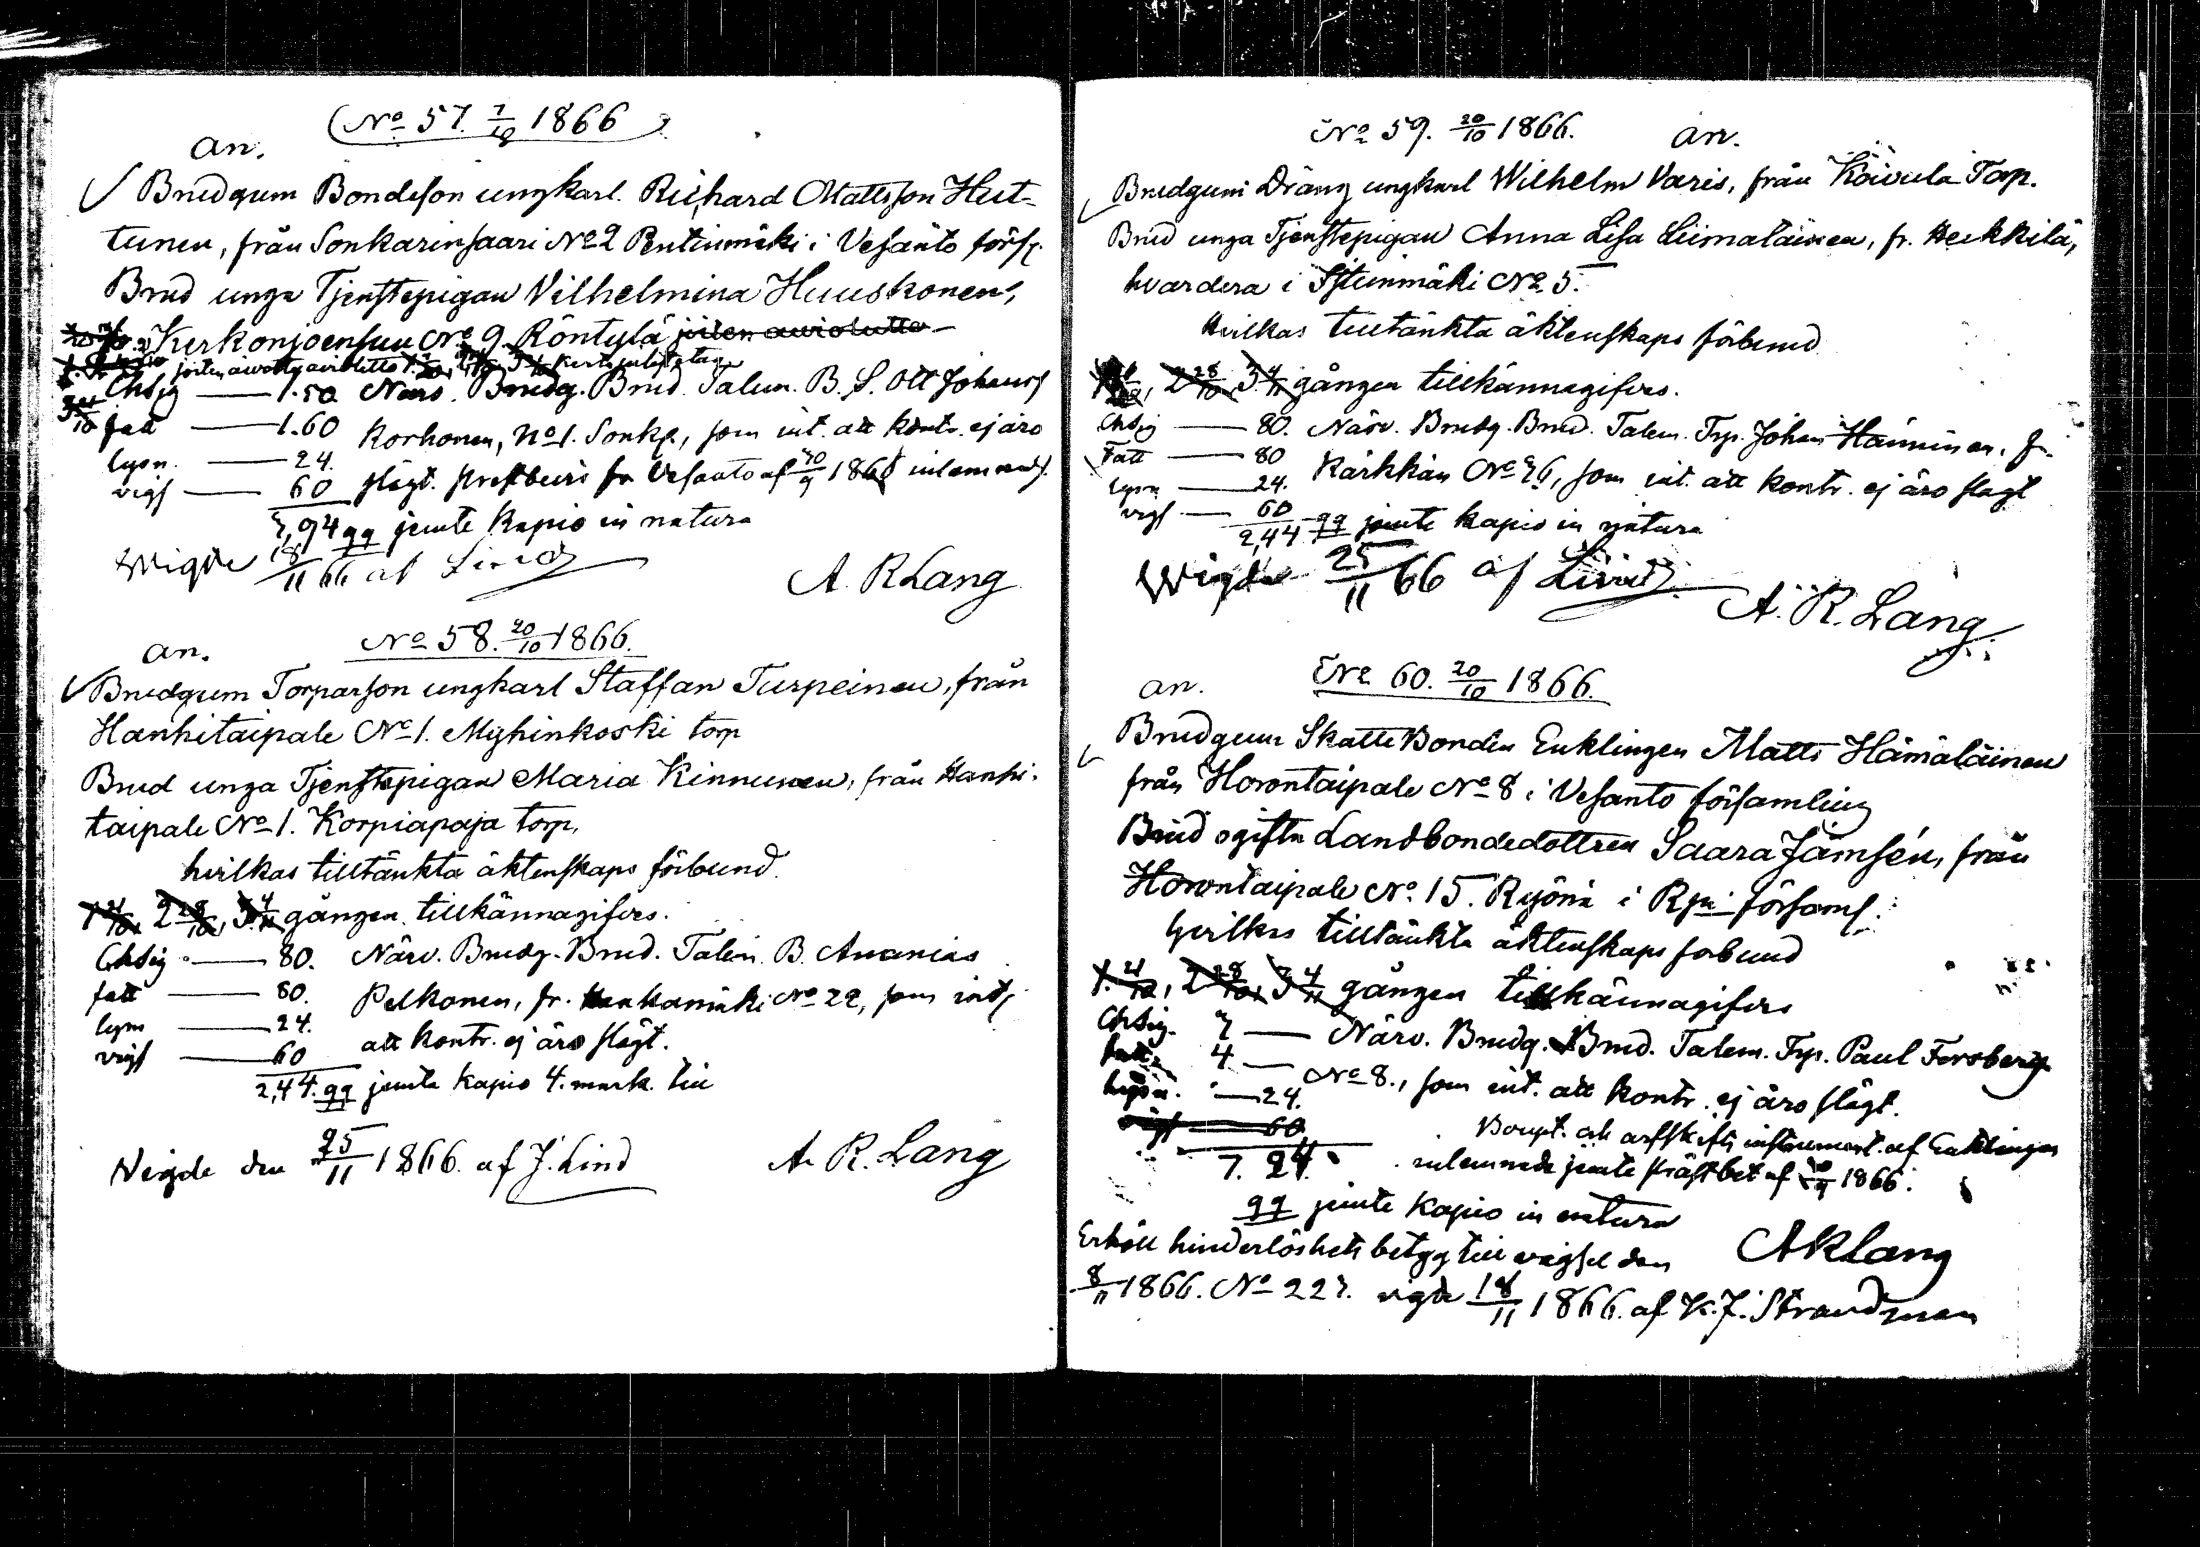 No 57. 7/10 1866
an.
Brudgum Bondeson ungkarl. Richard Mattsson Hut-
tunen, från Sonkarinsaari No 2 Pentinmäki i Vesanto förs.
Brud unga Tjenstepigan Vilhelmina Huuskonen,
Kerkonjoensuu No 9 Röntylä joiten aviolutto
Chsig — 1.50 Närv. Brudg. Brud. Talem. B. S. Ott Johanss
fatt — 1.60 Korhonen, No 1. Sonk, som int. att kontr. ej äro
lysn. — 24. slägt. Prestbevis fr Vesanto af 30/9 1866 inlemnad.
vigs — 60
3,94 qq jemte Kapio in natura
Wigde 18/11 66 af Lind
A. R Lang
No 58. 20/10 1866.
an.
Brudgum Torparson ungkarl Staffan Turpeinen, från
Hanhitaipale No 1. Myhinkoski torp
Brud unga Tjenstepigan Maria Kinnunen, från Hanhi-
taipale No 1. Korpiapaja torp,
hvilkas tilltänkta äktenskaps förbund.
1 21/10, 2 28/10, 3 4/11 gången tillkännagifves.
Chsig — 80. Närv. Brudg. Brud. Talem. B. Ananias
fatt — 80. Pelkonen, fr. Kenkämäki No 22, som int
lysn — 24. att kontr. ej äro slägt.
vigs — 60
2,44. qq jemte kapio 4. mark. till
Vigde den 25/11 1866. af J. Lind
A. R. Lang
No 59. 20/10 1866.
an.
Brudgum Dräng ungkarl Wilhelm Varis, från Koivula Torp.
Brud unga Tjenstepigan Anna Lisa Liimatainen, fr. Heikkilä,
hvardera i Istunmäki No 5.
hvilkas tilltänkta äktenskaps förbund
2 28/10, 3 4/11 gången tillkännagifves.
Chsig — 80. Närv. Brudg. Brud. Talem. Trp. Johan Hänninen, fr.
Fatt — 80 Kärkkän No 26, som int. att kontr. ej äro slägt
lysn — 24.
vigs — 60
2,44 qq jemte kapio in natura
Wigda 25/11 66 af Lind
A. R. Lang
No 60. 20/10 1866.
an.
Brudgum Skatte Bonden Enklingen Matts Hämäläinen
från Horontaipale No 8 i Vesanto församling
Brud ogifta Landbondedottren Saara Jämsén, från
Horontaipale No 15. Ryönä i Rpi församl.
hvilkas tilltänkta äktenskaps förbund
1. 21/10, 2 28/10, 3 4/11 gången tillkännagifves
Chsig. 3 — Närv. Brudg. Brud. Talem. Trp. Paul Forsberg
fatt. 4 — No 8., som int. att kontr. ej äro slägt.
lysn. — 24. Boupt. och arfskifts instrument af Enklingen
vigs — 60 inlemnade jemte Präst bet af 30/9 1866.
7. 24.
qq jemte kapio in natura
Erhöll hinderlöshets betyg till vigsel den
A R Lang
8/11 1866. No 223. vigde 18/11 1866. af K. J. Strandman